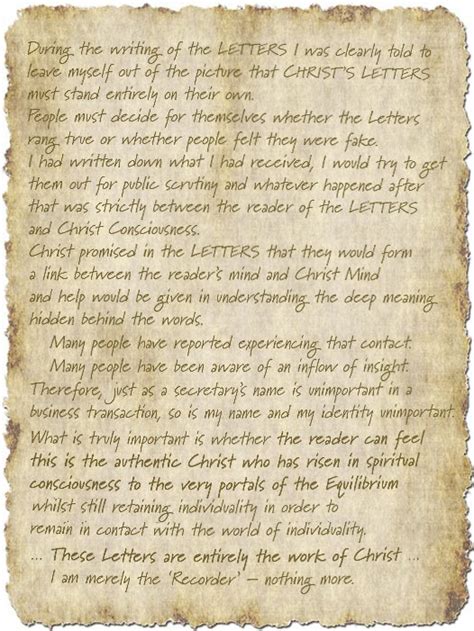 During the writing of the LETTERS I was clearly told to
leave myself out of the picture that CHRIST'S LETTERS
must stand entirely on their own.
People must decide for themselves whether the Letters
rang true or whether people felt they were fake.
I had written down what I had received, I would try to get
them out for public scrutiny and whatever happened after
that was strictly between the reader of the LETTERS
and Christ Consciousness.
Christ promised in the LETTERS that they would form
a link between the reader's mind and Christ Mind
and help would be given in understanding the deep meaning
hidden behind the words.
Many people have reported experiencing that contact.
Many people have been aware of an inflow of insight.
Therefore, just as a secretary's name is unimportant in a
business transaction, so is my name and my identity unimportant.
What is truly important is whether the reader can feel
this is the authentic Christ who has risen in spiritual
consciousness to the very portals of the Equilibrium
whilst still retaining individuality in order to
remain in contact with the world of individuality.
... These Letters are entirely the work of Christ ...
I am merely the 'Recorder' – nothing more.